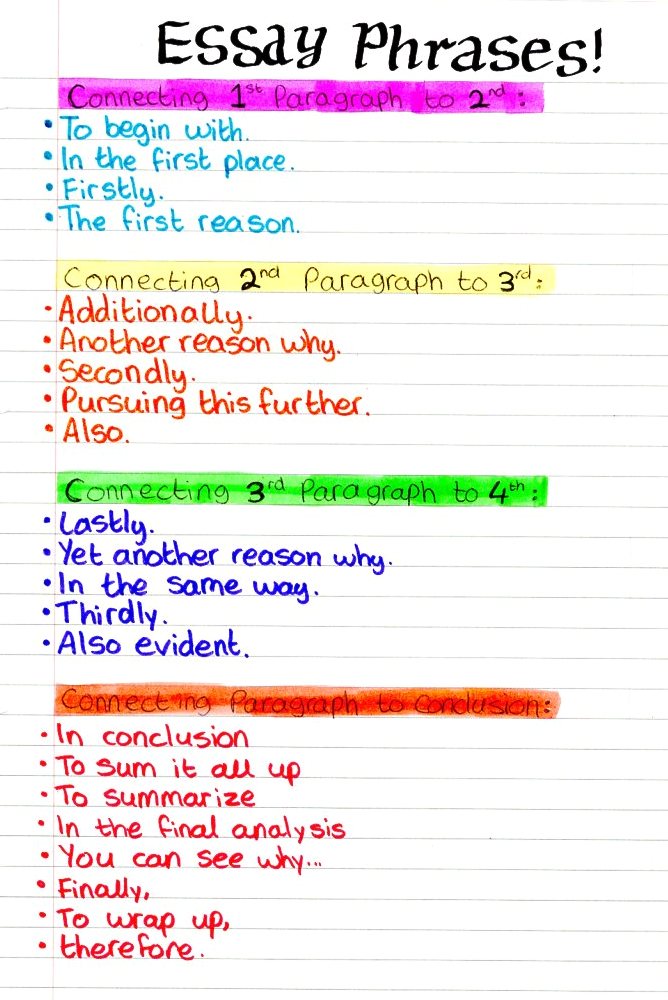 Essay Phrases!
Connecting 1st Paragraph to 2nd:
• To begin with.
• In the first place.
• Firstly.
• The first reason.
Connecting 2nd Paragraph to 3rd:
• Additionally.
• Another reason why.
• Secondly.
• Pursuing this further.
• Also.
Connecting 3rd Paragraph to 4th:
• Lastly.
• Yet another reason why.
• In the same way.
• Thirdly.
• Also evident.
Connecting Paragraph to Conclusion:
• In conclusion
• To sum it all up
• To summarize
• In the final analysis
• You can see why...
• Finally,
• To wrap up,
• therefore.